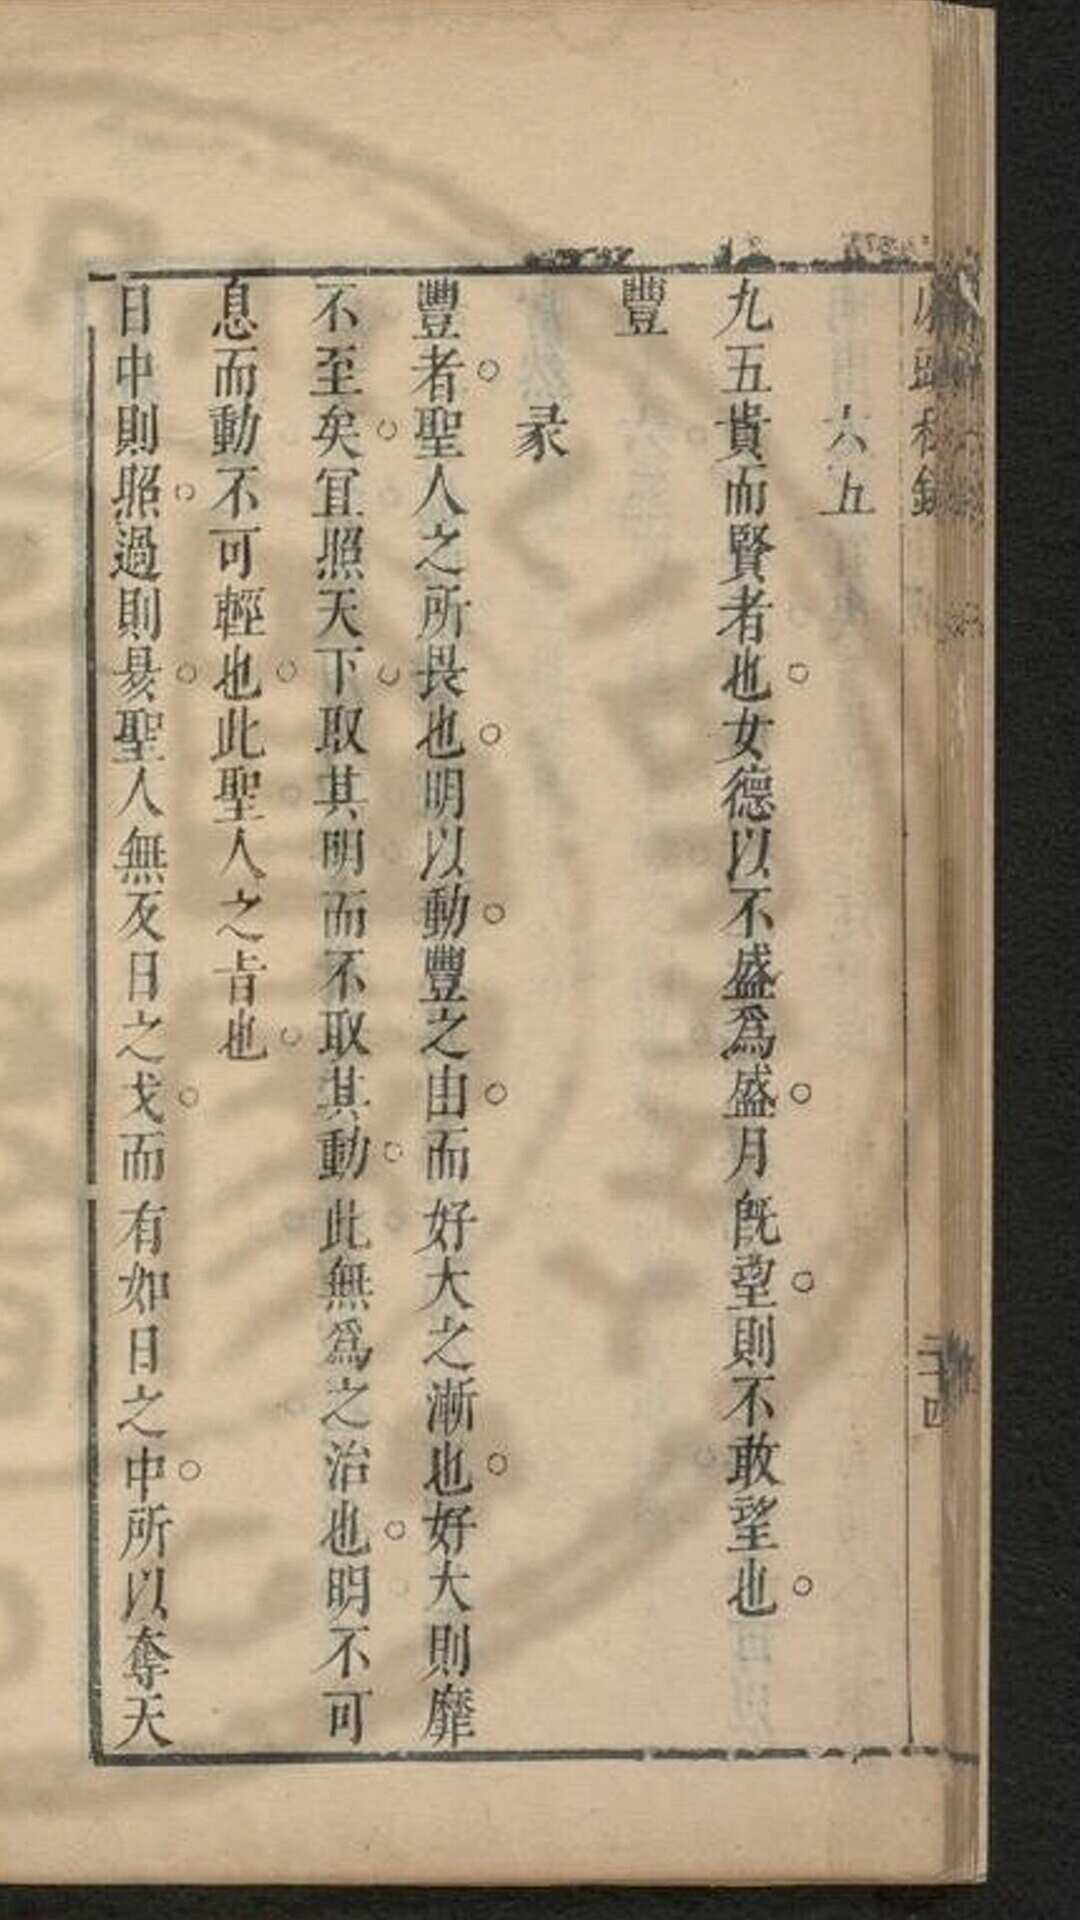 六五
九五貴而賢者也女德以不盛爲盛月旣望則不敢望也
豐
彖
豐者聖人之所畏也明以動豐之由而好大之漸也好大則靡
不至矣冝照天下取其明而不取其動此無爲之治也明不可
息而動不可輕也此聖人之旨也
日中則照過則昃聖人無及日之戈而有如日之中所以奪天
二十四